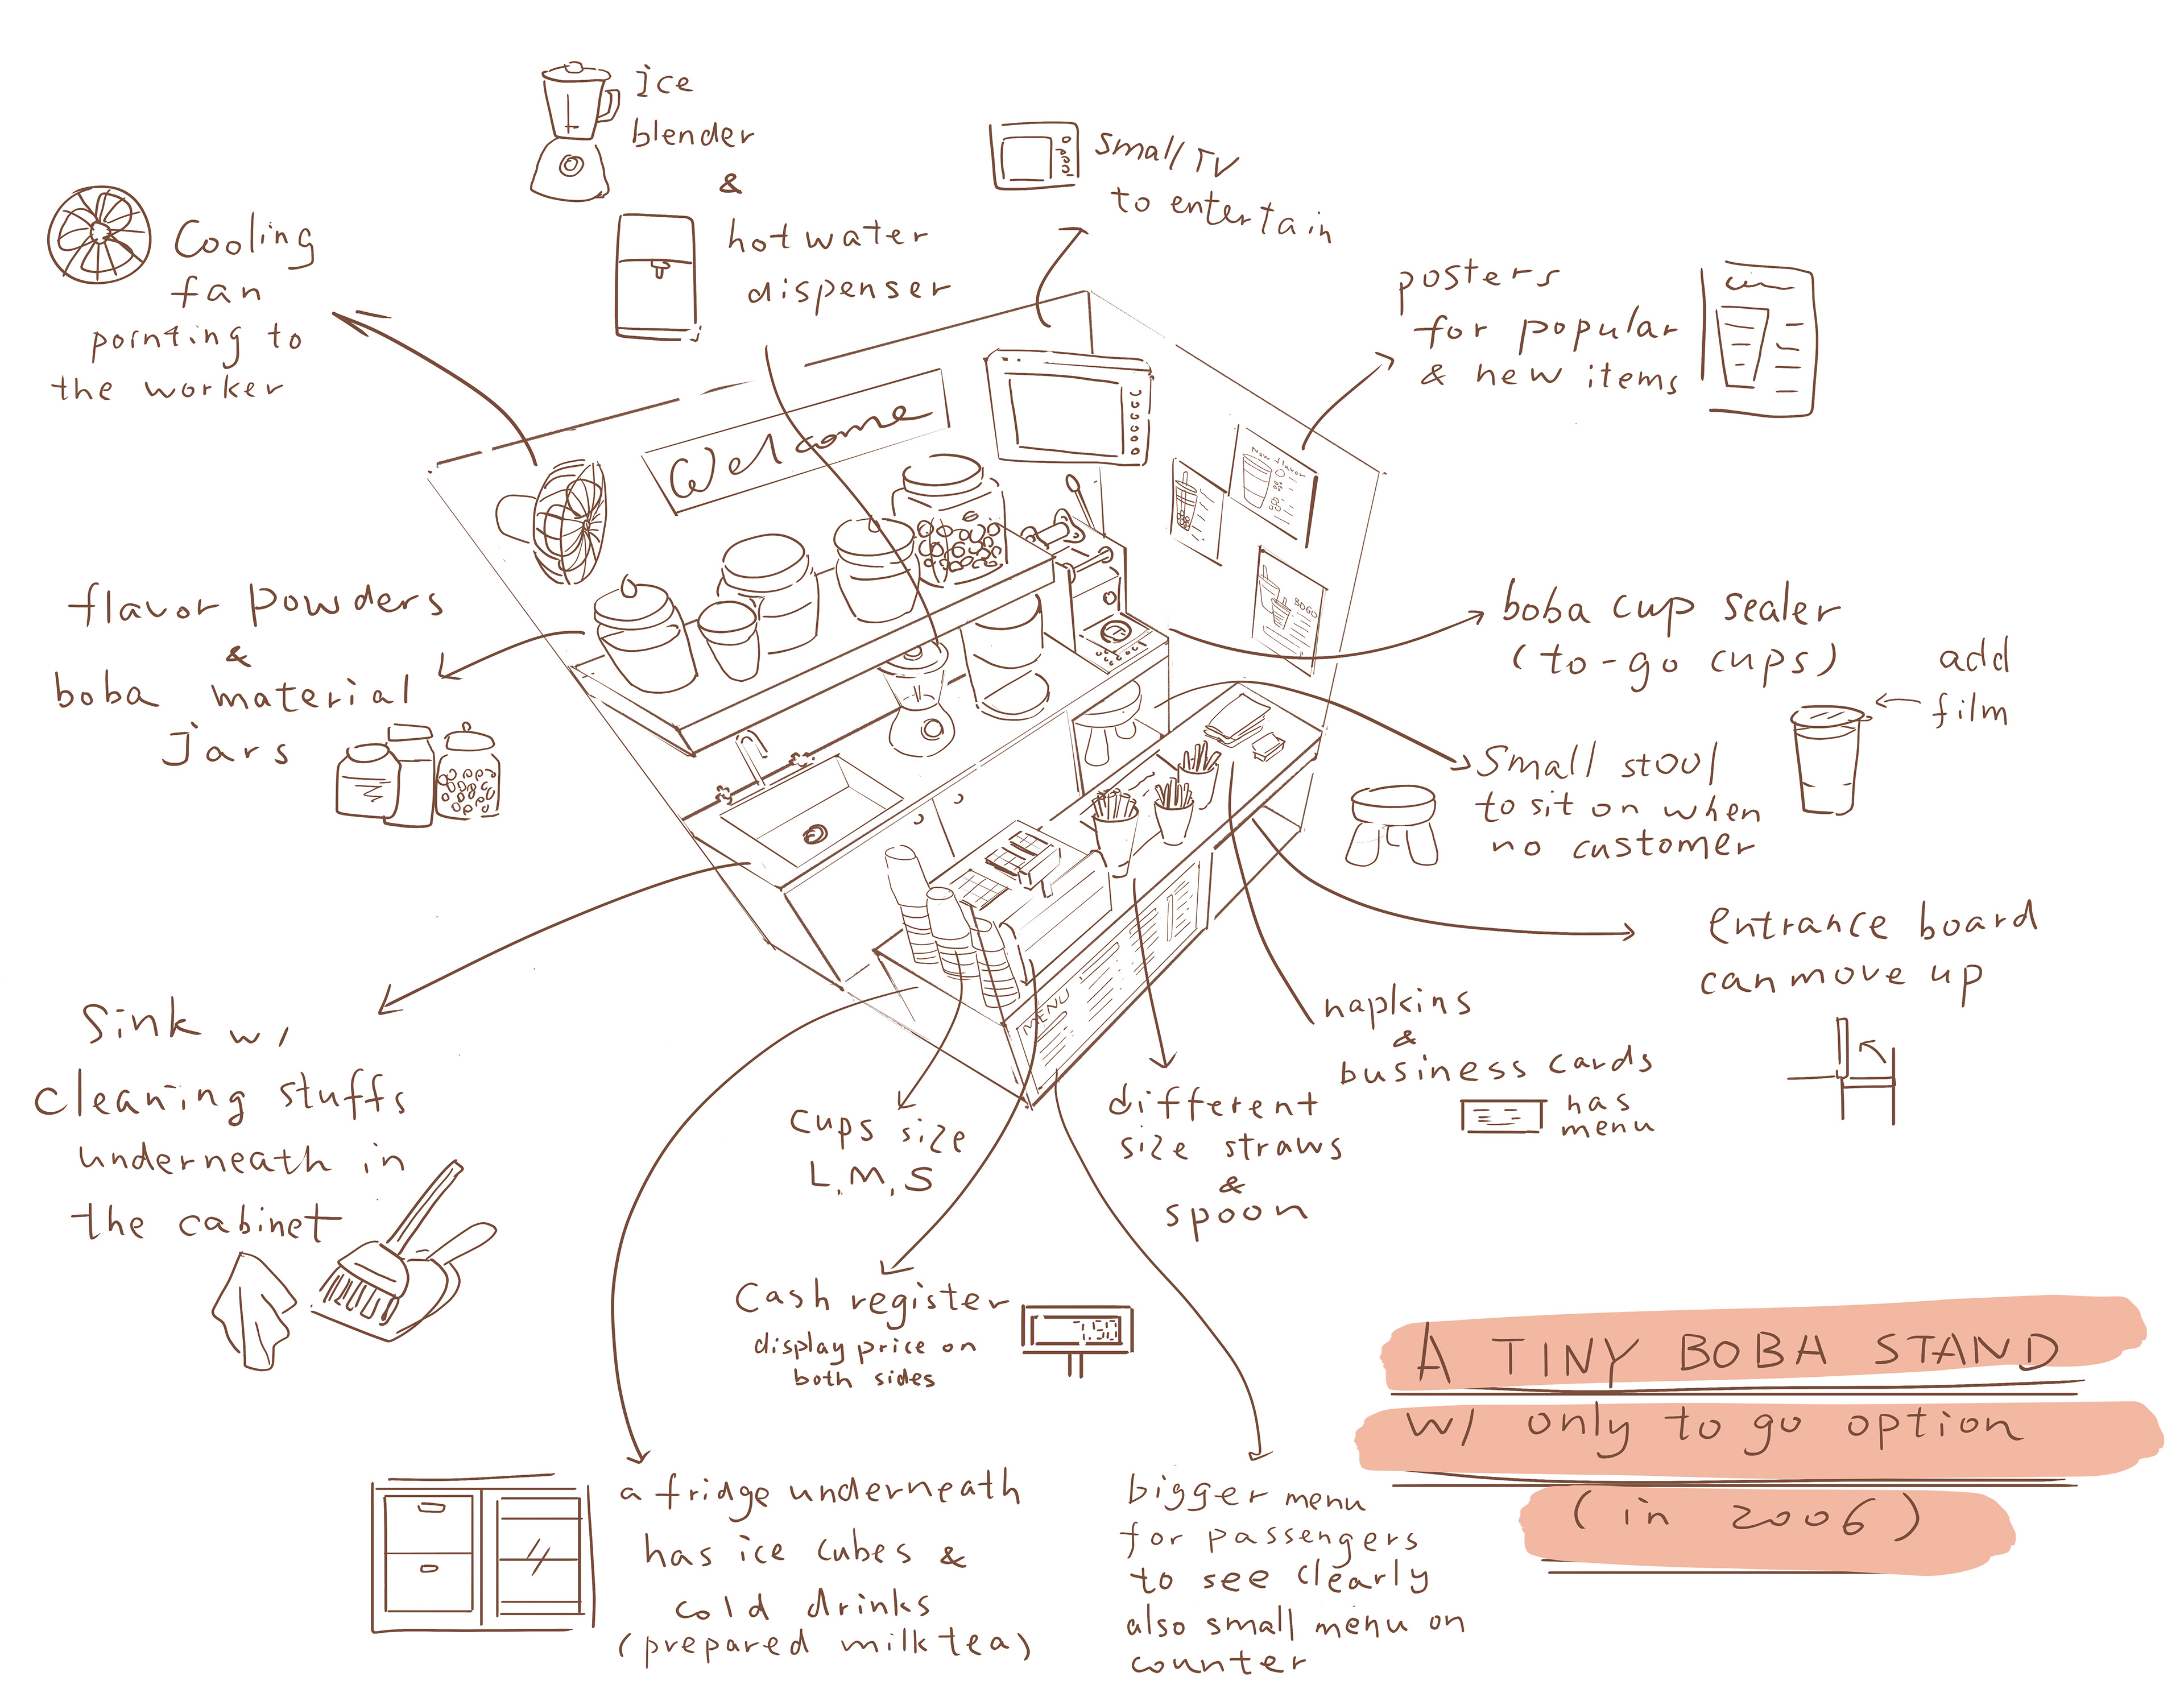 ice
blender
&
hot water
dispenser
small TV
to entertain
Cooling
fan
pointing to
the worker
posters
for popular
& new items
Welcome
New flavor
BOGO
flavor powders
&
boba material
Jars
boba cup sealer
(to-go cups)
add
film
Small stool
to sit on when
no customer
entrance board
can move up
Sink w/
cleaning stuffs
underneath in
the cabinet
MENU
napkins
&
business cards
has
menu
different
size straws
&
spoon
cups size
L, M, S
Cash register
display price on
both sides
a fridge underneath
has ice cubes &
cold drinks
(prepared milk tea)
bigger menu
for passengers
to see clearly
also small menu on
counter
A TINY BOBA STAND
w/ only to go option
(in 2006)